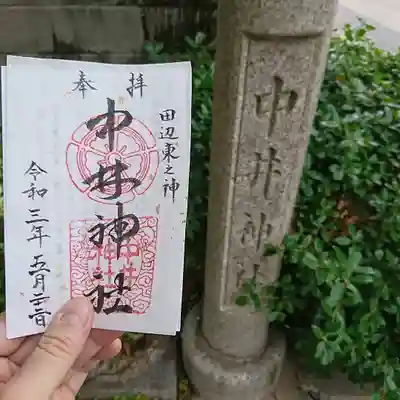 奉拝
田辺東之神
中井神社
令和三年五月二日
中井神社